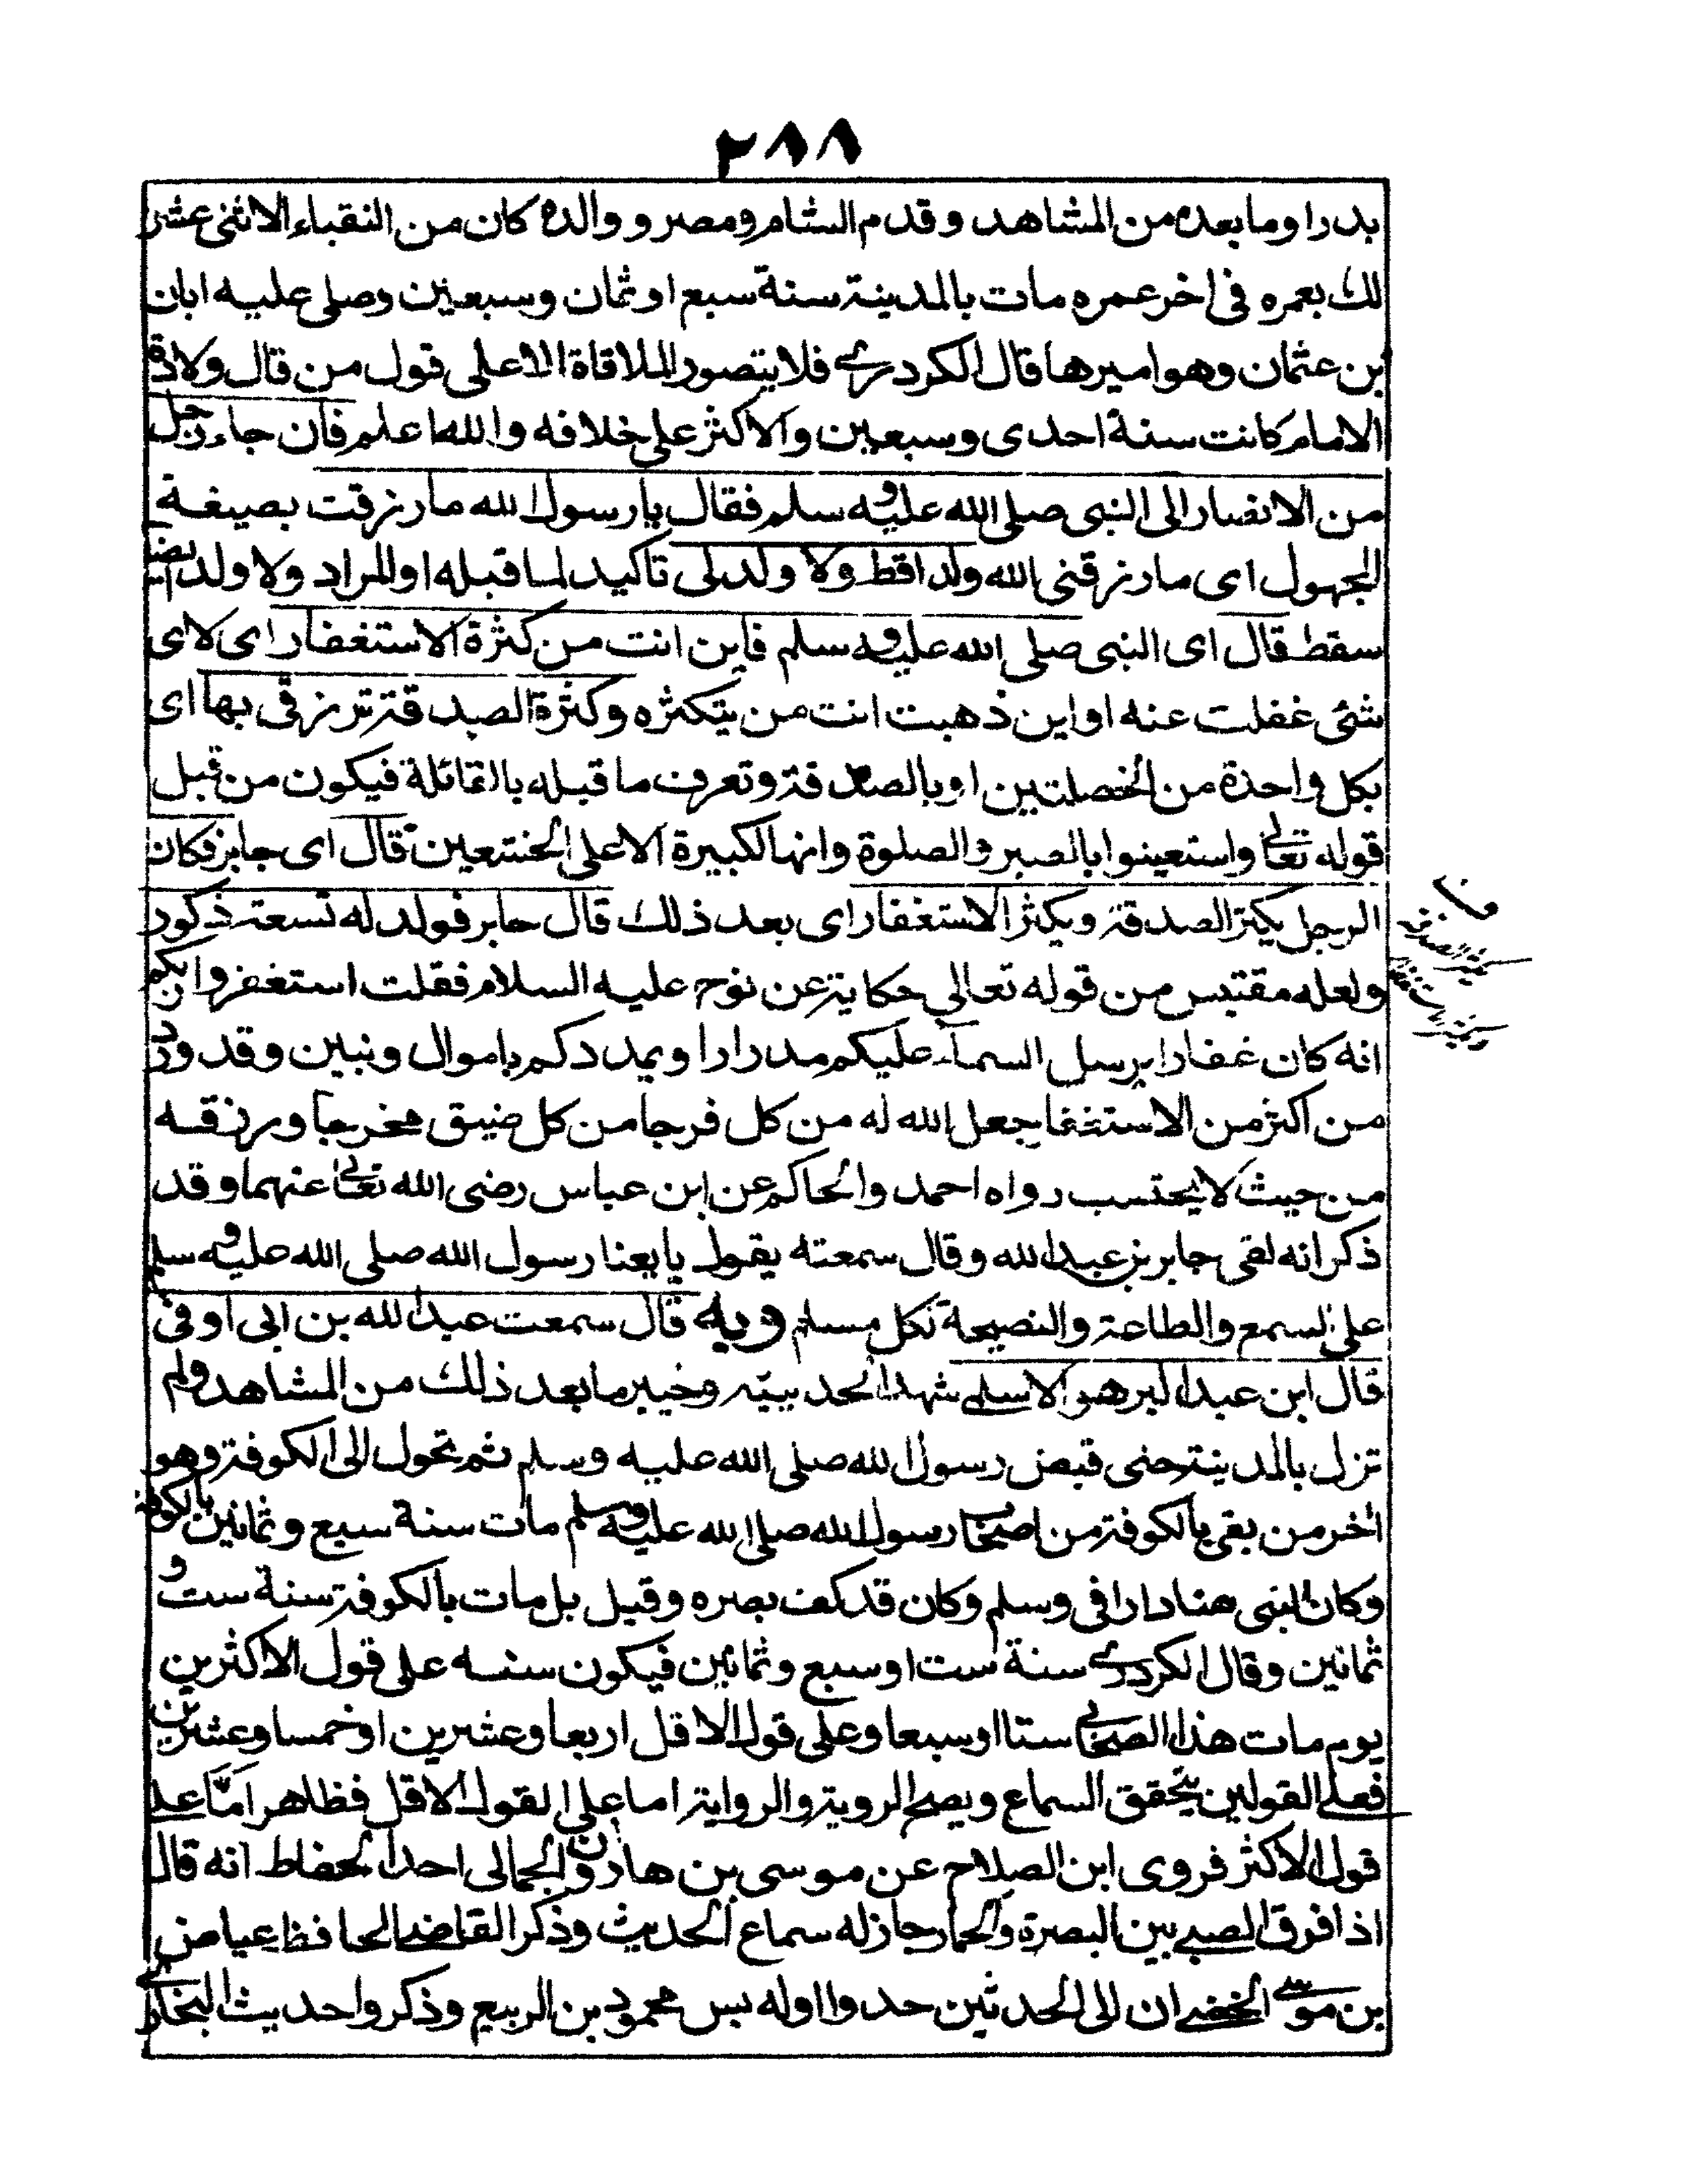 ٢٨٨
بدرا وما بعده من المشاهد وقدم الشام ومصر و والده كان من النقباء الاثنى عشر
لك بعمره فى اخر عمره مات بالمدينة سنة سبع او ثمان وسبعين وصلى عليه ابان
بن عثمان وهو اميرها قال الكردرى فلا يتصور الملاقاة الا على قول من قال ولادة
الامام كانت سنة احدى وسبعين والاكثر على خلافه والله اعلم فان جاء رجل
من الانصار الى النبى صلى الله عليه وسلم فقال يا رسول الله ما رزقت بصيغة
المجهول اى ما رزقنى الله ولدا قط ولا ولد لى تاكيد لما قبله او المراد ولا ولد ايضا
سقط قال اى النبى صلى الله عليه وسلم فاين انت من كثرة الاستغفار اى لاى
شئ غفلت عنه او اين ذهبت انت من يتكثره وكثرة الصدقة ترزق بها اى
بكل واحدة من الخصلتين او بالصدقة وتعرف ما قبله بالمقائلة فيكون من قبل
قوله تعالى واستعينوا بالصبر والصلوة وانها لكبيرة الا على الخشعين قال اى جابر فكان
الرجل يكثر الصدقة ويكثر الاستغفار اى بعد ذلك قال جابر فولد له تسعة ذكور
ولعله مقتبس من قوله تعالى حكاية عن نوح عليه السلام فقلت استغفروا ربكم
انه كان غفارا يرسل السماء عليكم مدرارا ويمددكم باموال وبنين وقد ورد
من اكثر من الاستغفا جعل الله له من كل فرجا من كل ضيق مخرجا ورزقه
من حيث لا يحتسب رواه احمد والحاكم عن ابن عباس رضى الله تعالى عنهما وقد
ذكر انه لقى جابر بن عبد الله وقال سمعته يقول بايعنا رسول الله صلى الله عليه وسلم
على السمع والطاعة والنصيحة لكل مسلم وبه قال سمعت عبد الله بن ابى اوفى
قال ابن عبد البر هو الاسلمى شهد الحديبيه وخيبر ما بعد ذلك من المشاهد ولم
تزل بالمدينة حتى قبض رسول الله صلى الله عليه وسلم ثم تحول الى الكوفة وهو
اخر من بقى بالكوفة من اصحاب رسول الله صلى الله عليه وسلم مات سنة سبع وثمانين بالكوفة
وكان ابنى هنا دارا فى وسلم وكان قد كف بصره وقيل بل مات بالكوفة سنة ست و
ثمانين وقال الكردرى سنة ست او سبع وثمانين فيكون سنه على قول الاكثرين
يوم مات هذا الصحابى ستا او سبعا وعلى قول الاقل اربعا وعشرين او خمسا وعشرين
فعلى القولين يتحقق السماع ويصح الروية والرواية اما على القول الاقل فظاهر اما على
قول الاكثر فروى ابن الصلاح عن موسى بن هارون الجمالى احد الحفاظ انه قال
اذا فرق الصبى بين البصرة والحمار جاز له سماع الحديث وذكر القاضى الحافظ عياض
بن موسى الخضى ان الى الحدثين حدوا اوله بس محمود بن الربيع وذكر واحديث البخارى